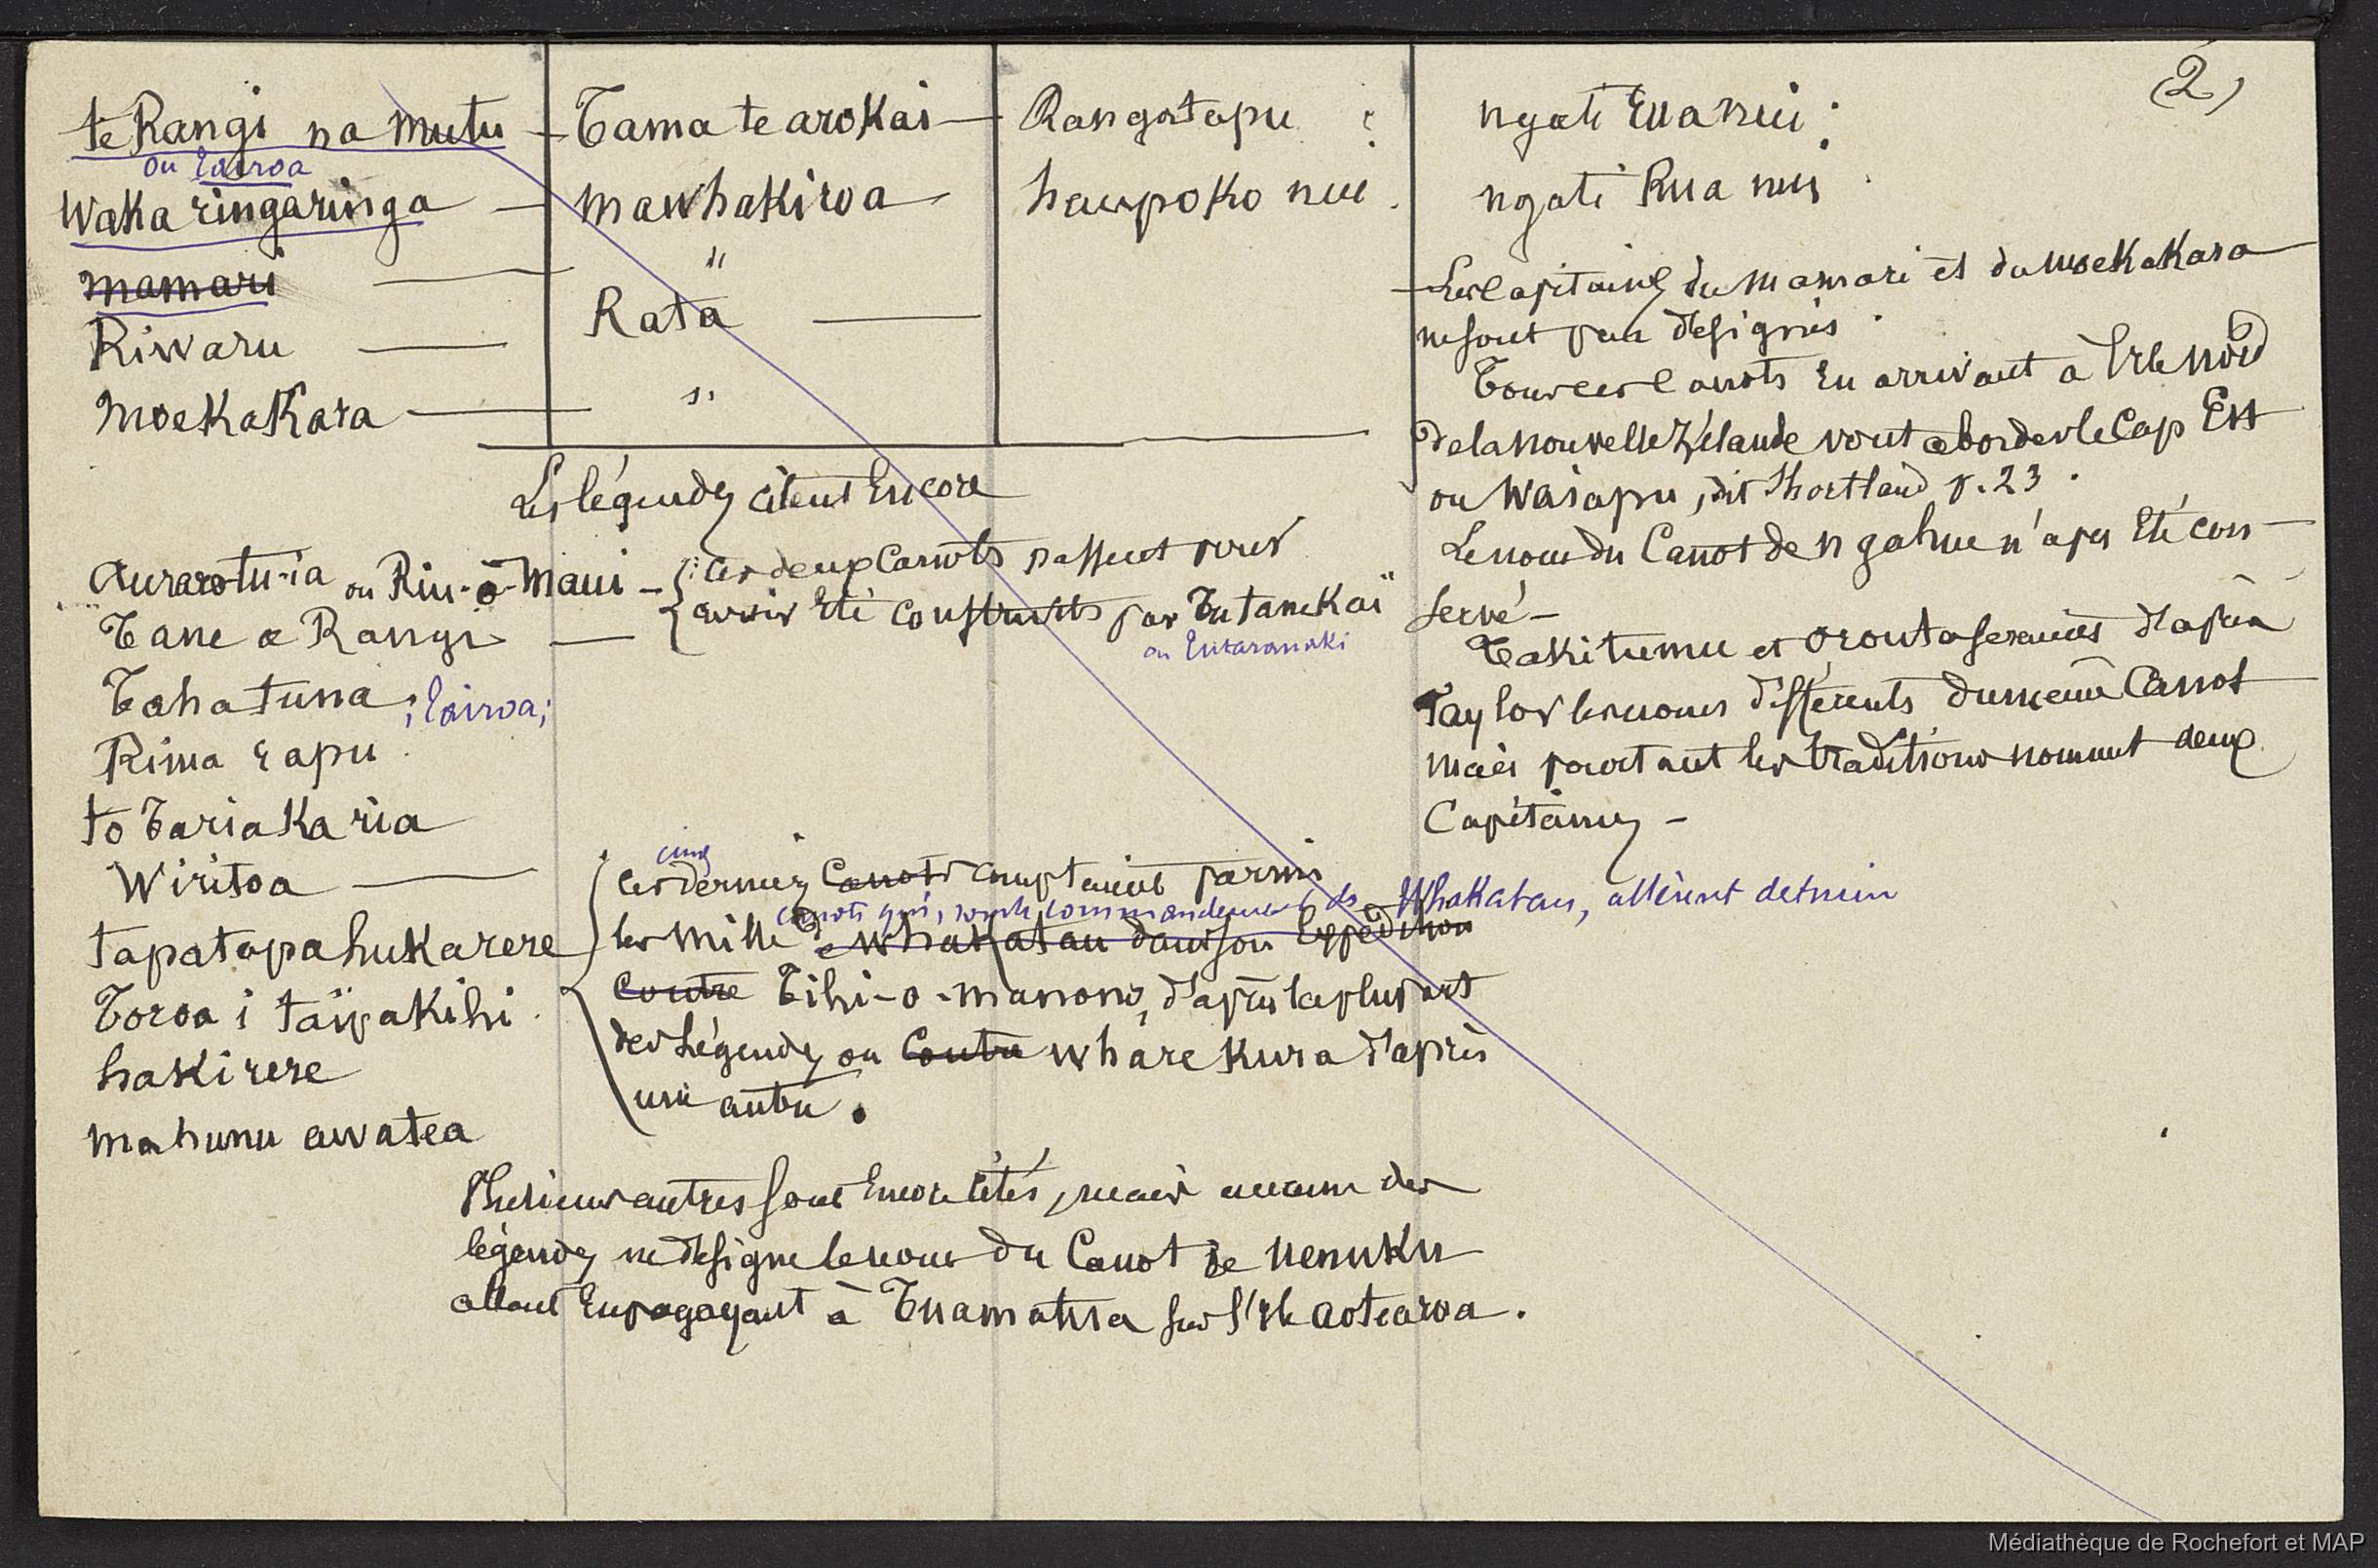 (2)
te Rangi na mutu — Tama te arokai — Rangatapu : ngati Rua nui :
ou Eairoa
Waka ringaringa — mawhakiroa — haupoko nui . ngati Rua nui .
mamari — "
Riwaru — Rata —
moekakara — "
— Les Capitaines du mamari et du moekakara
ne sont pas désignés .
Tous ces Canots en arrivant à l'Ile nord
de la nouvelle Zélande vont aborder le Cap Est
ou Waiapu, dit Shortland p. 23 .
Le nom du Canot de ngahue n'a pas été con-
servé —
Takitumu et Orouta seraient d'après
Taylor les noms différents du même Canot
mais pourtant les traditions nomment deux
Capitaines —
Les légendes citent encore
Auraro-tu-ia ou Riu-o-Maui — { ces deux Canots passent pour
Tane a Rangi — avoir été construits par Tutanekai"
ou
Tahatuna ; Eairoa ;
Rima rapu
to Tariakaria
Wiritoa —
tapatapahukarere
Toroa i taïpakihi .
hakirere
mahunu awatea
cinq
{ ces derniers Canots comptaient parmi
canots qui, sous le commandement de Whakatau, allèrent détruire
les mille de whakatau dans son Expédition
Contre Tihi-o-manono, d'après la plupart
des Légendes ou Contre wharekura d'après
une autre .
Plusieurs autres sont encore cités, mais aucune des
légendes ne désigne le nom du Canot de Uenuku
allant en pagayant à Tuamatua sur l'Ile aotearoa .
Médiathèque de Rochefort et MAP